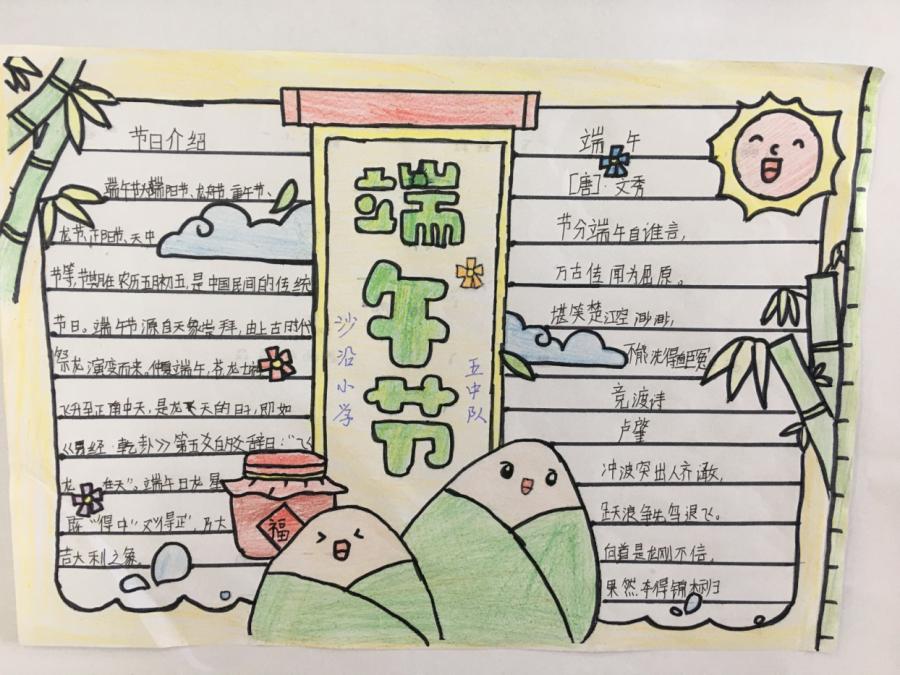 节日介绍
端午节又称端阳节、龙舟节、重午节、
龙节、正阳节、天中
节等,节期在农历五月初五,是中国民间的传统
节日。端午节源自天象崇拜,由上古时代
祭龙演变而来。仲夏端午,苍龙七宿
飞升至正南中天,是龙飞天的日子,即如
《易经·乾卦》第五爻的爻辞曰:“飞
龙在天”。端午日龙星
既“得中”又“得正”,乃大
吉大利之象。
端午节
沙沿小学
五中队
福
端午
[唐]·文秀
节分端午自谁言,
万古传闻为屈原。
堪笑楚江空渺渺,
不能洗得直臣冤
竞渡诗
卢肇
冲波突出人齐譀,
跃浪争先鸟退飞。
向道是龙刚不信,
果然夺得锦标归